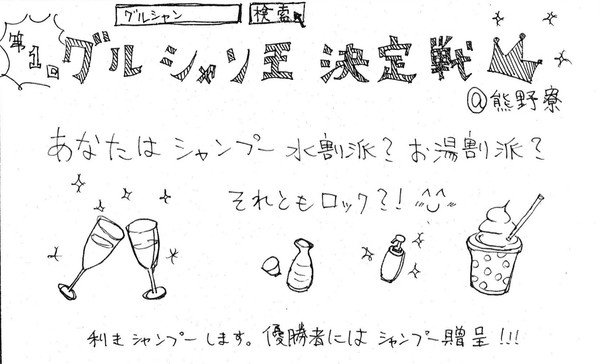 グルシャン 検索
第1回 グルシャン王 決定戦
@熊野寮
あなたは シャンプー 水割派? お湯割派?
それともロック?!
利きシャンプーします。優勝者には シャンプー贈呈!!!